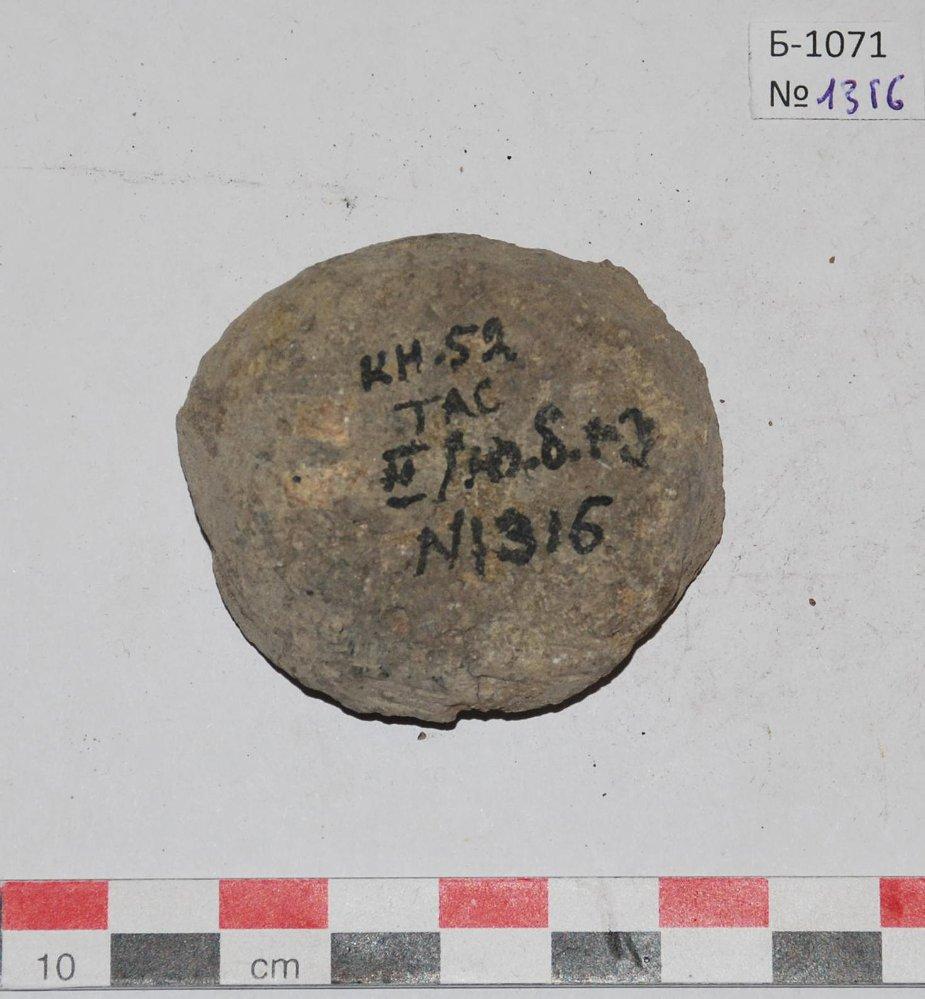 Б-1071
№ 1316
КН.52
ТАС
II/ю.б.гз
N1316
10 cm